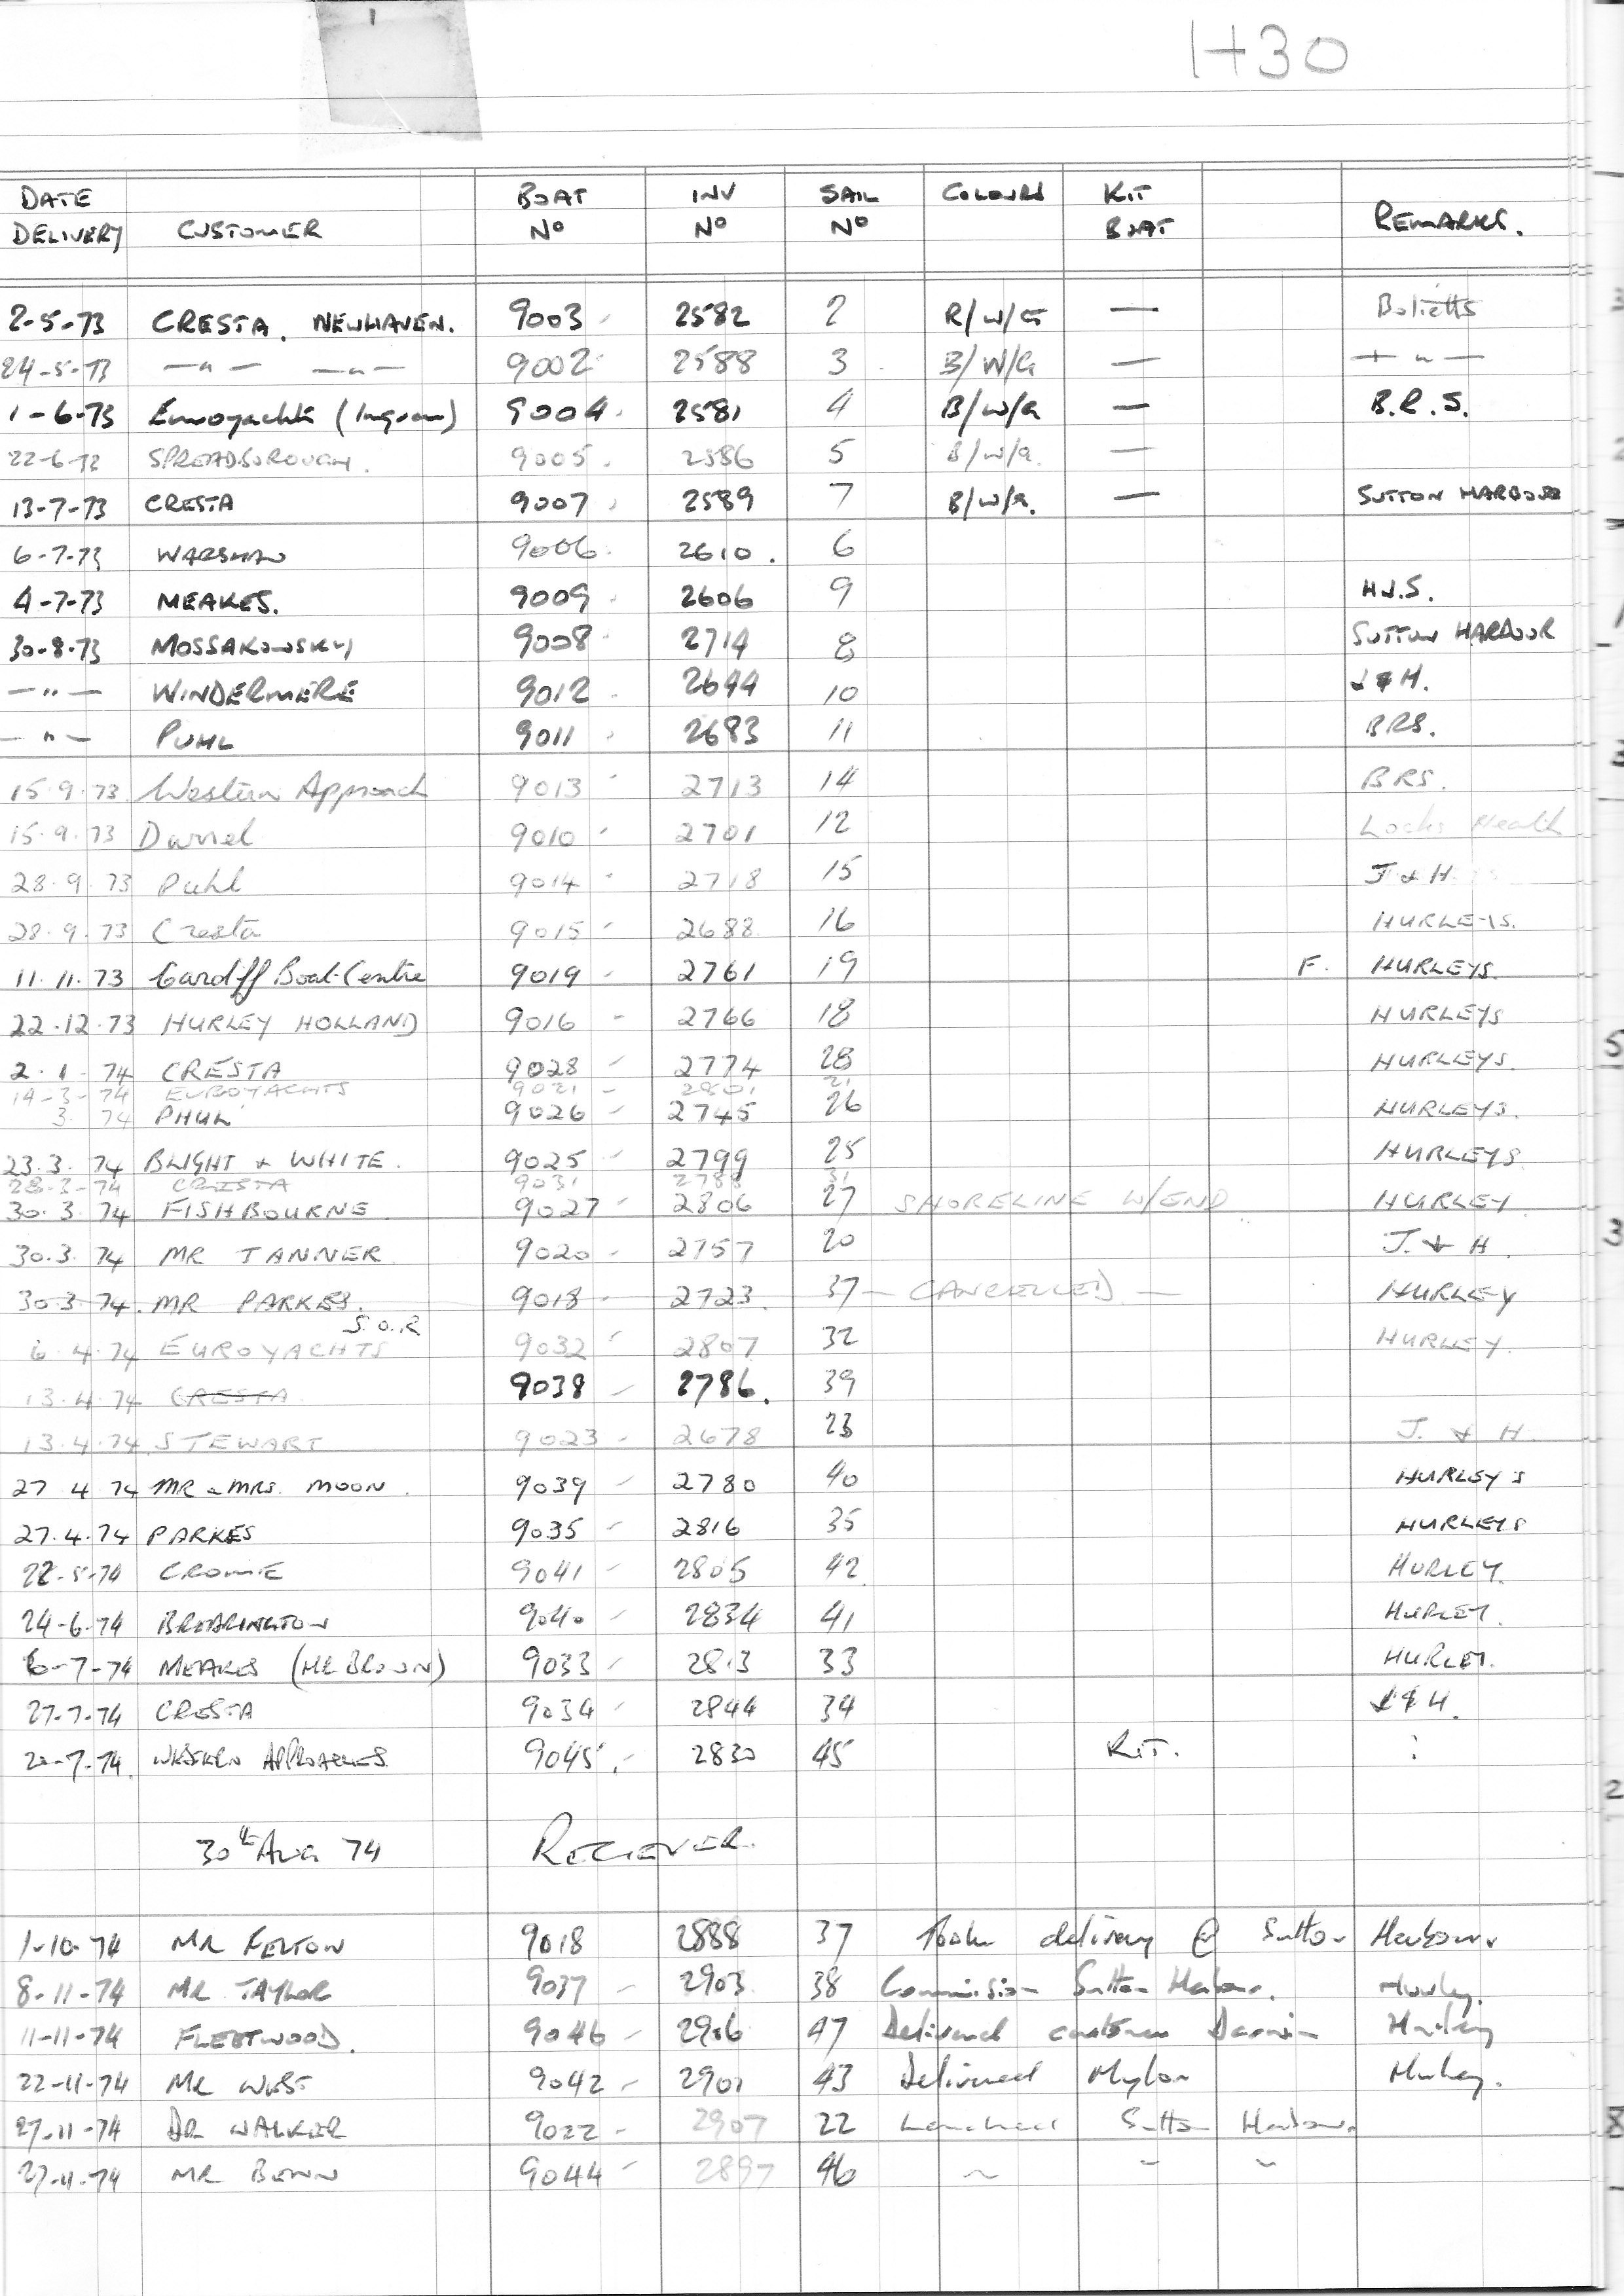 H30
DATE DELIVERY CUSTOMER BOAT Nº INV Nº SAIL Nº COLOURS KIT BOAT REMARKS.
2-5-73 CRESTA. NEWHAVEN. 9003 - 2582 2 R/W/G —
24-5-73 — " — — " — 9002 2588 3 B/W/G — — " —
1-6-73 Euroyachts (Ingram) 9004. 2581 4 B/W/G — B.R.S.
22-6-73 SPREADBOROUGH. 9005. 2586 5 B/W/G. —
13-7-73 CRESTA 9007 2589 7 B/W/G. — SUTTON HARBOUR
6-7-73 WARSHAW 9006. 2610. 6
4-7-73 MEAKES. 9009 2606 9 H.J.S.
30-8-73 MOSSAKOWSKY 9008 2714 8 SUTTON HARBOUR
— " — WINDERMERE 9012 2644 10 J & H.
— " — PUHL 9011 2683 11 BRS.
15.9.73 Western Approach 9013 2713 14 BRS.
15.9.73 9010 2701 12 Locks Heath
28.9.73 Puhl 9014 2718 15 J & H
28.9.73 Cresta 9015 2688 16 HURLEYS.
11.11.73 Cardiff Boat Centre 9019 - 2761 19 F. HURLEYS.
22.12.73 HURLEY HOLLAND 9016 - 2766 18 HURLEYS
2.1-74 CRESTA 9028 - 2774 28 HURLEYS.
14-3-74 EUROYACHTS 9021 - 2801 21
3. 74 PHUL 9026 - 2745 26 HURLEYS.
23.3.74 BLIGHT + WHITE. 9025 - 2799 25 HURLEYS
28-3-74 CRESTA 9031 2788 31
30.3.74 FISHBOURNE 9027 2806 27 SHORELINE W/END HURLEY
30.3.74 MR TANNER 9020 - 2757 20 J. & H.
30.3.74. MR PARKES. 9018 - 2723. 37 — CANCELLED — HURLEY
S.O.R
6.4.74 EUROYACHTS 9032 2807 32 HURLEY.
13.4.74 CRESTA 9038 - 2786. 39
13.4.74 STEWART 9023 - 2678 23 J. & H.
27 4 74 MR & MRS. MOON. 9039 - 2780 40 HURLEY'S
27.4.74 PARKES 9035 - 2816 35 HURLEYS
22-5-74 CROMIE 9041 - 2805 42 HURLEY.
24-6-74 9040 - 2834 41 HURLEY.
6-7-74 MEAKES (MR BROWN) 9033 - 2813 33 HURLEY.
27-7-74 CRESTA 9034 - 2844 34 J & H.
WESTERN APPROACHES 9045. 2830 45 KIT. :
30th AUG 74 RECIEVER.
1-10-74 MR FELTON 9018 2888 37 Took delivery @ Sutton Harbour
8-11-74 MR TAYLOR 9037 - 2903 38 Commission Sutton Harbour. Hurley.
11-11-74 FLEETWOOD. 9046 - 2906 47 Delivered customer Hurley
22-11-74 MR WEST 9042 - 2901 43 Delivered Mylor Hurley.
27-11-74 DR WALKER 9022 - 2907 22 Launched Sutton Harbour.
27-11-74 MR BENN 9044 - 2897 46 ~ ~ ~